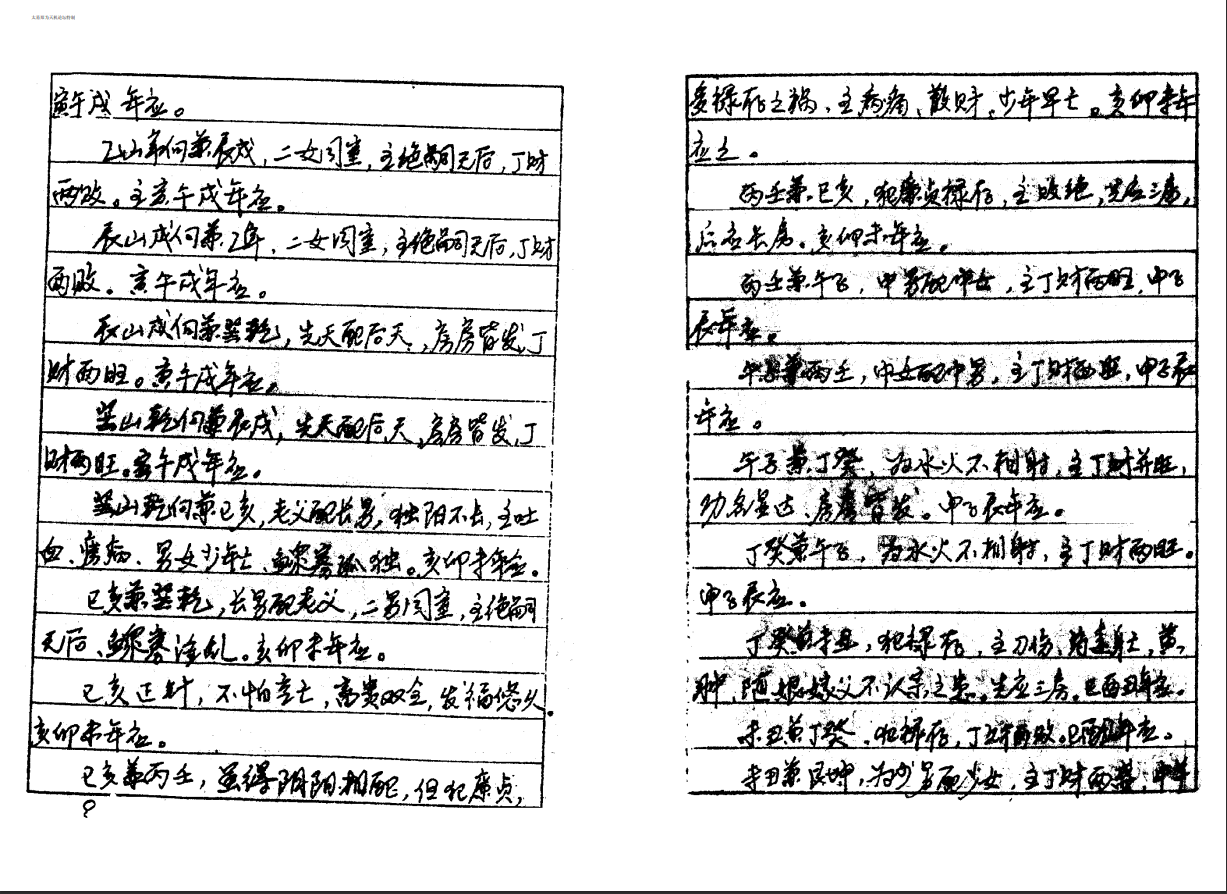 寅午戌年应。
乙山辛向兼辰戌,二女同室,主绝嗣无后,丁财
两败。主寅午戌年应。
辰山戌向兼乙辛,二女同室,主绝嗣无后,丁财
两败。寅午戌年应。
辰山戌向兼巽乾,先天配后天,房房皆发,丁
财两旺。寅午戌年应。
巽山乾向兼辰戌,先天配后天,房房皆发,丁
财两旺。寅午戌年应。
巽山乾向兼巳亥,老父配长男,独阳不长,主吐
血、痨病、男女少年亡、鳏寡孤独。亥卯未年应。
巳亥兼巽乾,长男配老父,二男同室,主绝嗣
无后、鳏寡淫乱。亥卯未年应。
巳亥正针,不怕空亡,富贵双全,发福悠久。
亥卯未年应。
巳亥兼丙壬,虽得阴阳相配,但犯廉贞,
9
禄存之祸,主病痛、散财、少年早亡。亥卯未年
应之。
丙壬兼巳亥,犯廉贞禄存,主败绝,先应三房,
后应长房。亥卯未年应。
丙壬兼午子,中男配中女,主丁财两旺,申子
辰年应。
午子兼丙壬,中女配中男,主丁财两旺,申子辰
年应。
午子兼丁癸,为水火不相射,主丁财并旺,
功名显达,房房皆发。申子辰年应。
丁癸兼午子,为水火不相射,主丁财两旺。
申子辰应。
丁癸兼未丑,犯禄存,主刀伤、身亡、黄
肿,随娘嫁父不认宗之患。先应三房。巳酉丑年应。
未丑兼丁癸,犯禄存,丁财两败。巳酉丑年应。
未丑兼艮坤,为少男配少女,主丁财两